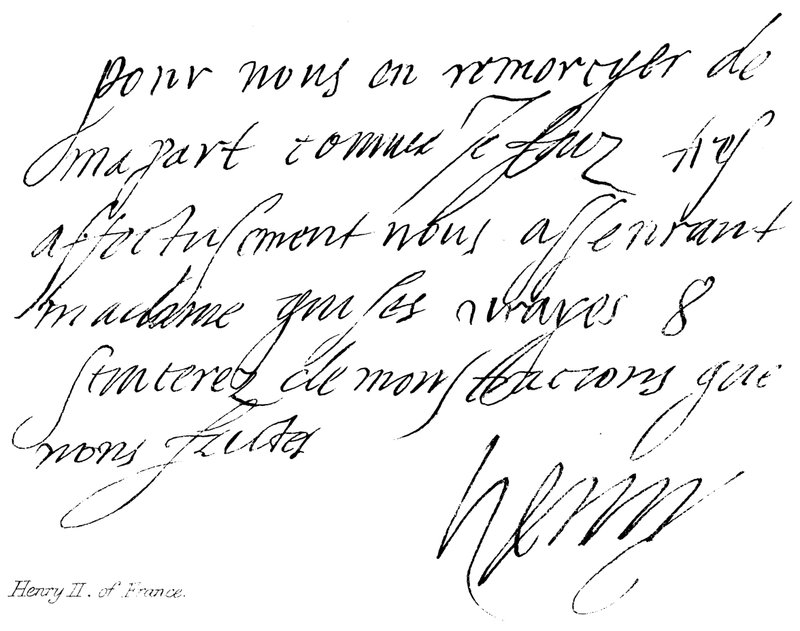 pour vous en remercyer de
ma part comme Je fais tres
affectusement vous assenrant
madame que les vrayes &
sinceres demonstracions que
vous faites
henry
Henry II. of France.